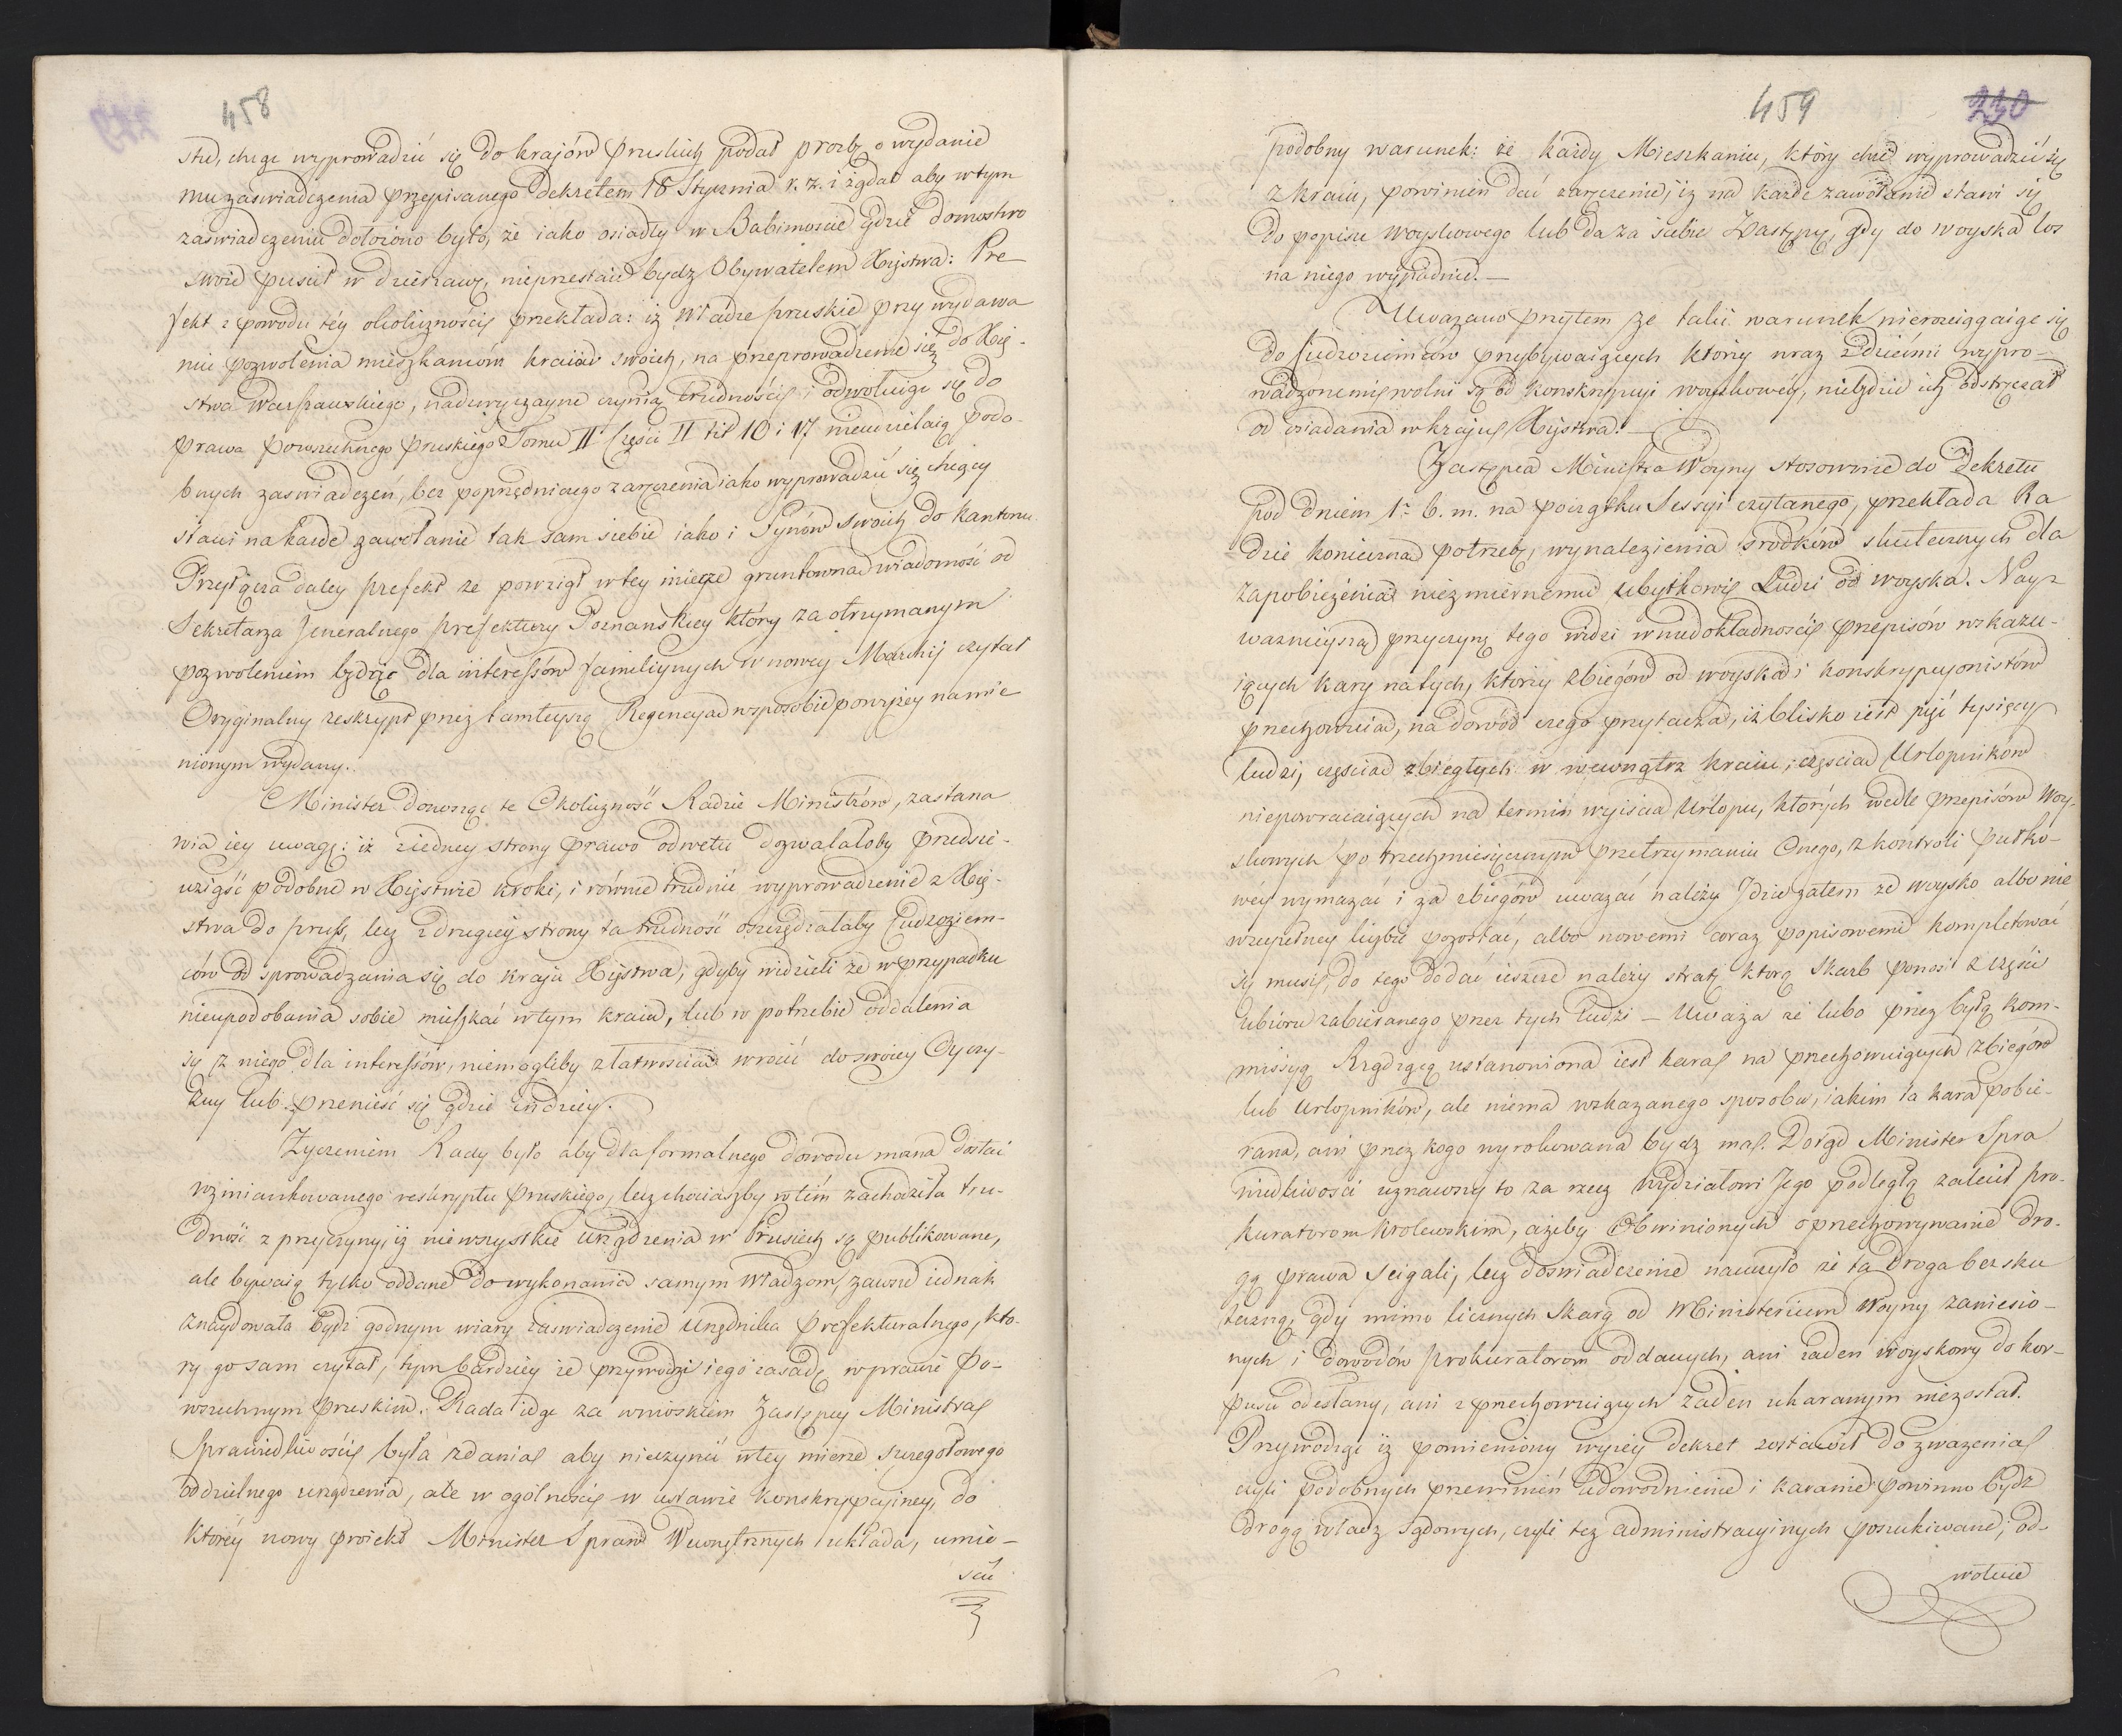 458
stie, chcąc wyprowadzić się do krajów pruskich podał prozbę o wydanie
mu zaswiadczenia przepisanego dekretem 18 Stycznia r. z. i żądał aby w tym
zaswiadczeniu dołożono było, że iako osiadły w Babimoscie gdzie domostwo
swoie puścił w dzierżawę, nieprzestaie bydz Obywatelem Xięstwa: Pre-
fekt z powodu téy okoliczności przekłada: iż Władze pruskie przy wydawa
niu pozwolenia mieszkańcóm kraiów swoich, na przeprowadzenie się do Xię-
stwa Warszawskiego, nadzwyczayne czynią trudności i odwołuiąc się do
prawa powszechnego pruskiego Tomu II Części II tit 10 i 17 nieudzielaią podo-
bnych zaswiadczeń, bez poprzedniczego zaręczenia iako wyprowadzić się chcący
stawi na każde zawołanie tak sam siebie iako i Synów swoich do kantonu
Przyłącza daley prefekt że powziął w tey mierze gruntowną wiadomość od
Sekretarza Jeneralnego prefektury Poznanskiey który za otrzymanym
pozwoleniem będąc dla interessów familiynych w nowey Marchij czytał
Oryginalny reskrypt przez tamteyszą Regencyą w sposobie powyżey namie
nionym wydany.
Minister donosząc te Okoliczność Radzie Ministrów, zastana
wia iey uwagę: iż z iedney strony prawo odwetu dozwalałoby przedsię-
wziąść podobne w Xięstwie kroki, i równie trudnić wyprowadzenie z Xię-
stwa do pruss, lecz z drugiey strony ta trudność oszczędzałaby Cudzoziem-
ców od sprowadzania się do kraju Xięstwa, gdyby widzieli że w przypadku
nieupodobania sobie mieszkać w tym kraiu, lub w potrzebie oddalenia
się z niego dla interessów, niemogliby z łatwością wrócić do swoiey Oyczy-
zny lub przenieść się gdzie indziey.
Życzeniem Rady było aby dla formalnego dowodu można dostać
wzmiankowanego reskryptu pruskiego, lecz chociażby w tém zachodziła tru-
dność z przyczyny, iż niewszystkie urządzenia w Prusiech są publikowane,
ale bywaią tylko oddane do wykonania samym Władzom, zawsze iednak
znaydowała bydź godnym wiary zaswiadczenie Urzędnika prefekturalnego, któ-
ry go sam czytał, tym bardziey że przywodzi iego zasadę w prawie po-
wszechnym pruskim. Rada idąc za wnioskiem Zastępcy Ministra
Sprawiedliwości była zdania aby nieczynić w tey mierze szczegółowego
oddzielnego urządzenia, ale w ogólności w ustawie konskrypcyiney, do
którey nowy proiekt Minister Spraw Wewnętrznych układa, umie-
scić
459
230
podobny warunek: że każdy Mieszkaniec, który chce wyprowadzić się
z kraiu, powinien dać zaręczenie, iż na każde zawołanie stawi się
do popisu woyskowego lub da za siebie Zastępcę, gdy do woyska los
na niego wypadnie.
Uważano przytem że takii warunek nierozciągaiąc się
do Cudzoziemców przybywaiących którzy wraz z dziećmi wypro-
wadzonemi wolni są od konskrypcyi woyskowéy, niebędzie ich odstręczał
od osiadania w kraju Xięstwa.
Zastępca Ministra Woyny stosownie do Dekretu
pod dniem 1o b. m. na początku Sessyi czytanego, przekłada Ra
dzie konieczną potrzebę, wynalezienia srodków skutecznych dla
zapobieżenia niezmiernemu ubytkowi Ludzi od woyska. Nay-
ważnieyszą przyczynę tego widzi w niedokładności przepisów wskazu-
iących kary na tych, którzy zbiegów od woyska i konskrypcyonistów
przechowuią, na dowód czego przytacza, iż blisko iest pięć tysięcy
ludzi, częścią zbiegłych w wewnątrz kraiu, częścią Urlopników
niepowracaiących na termin wyiścia Urlopu, których wedle przepisów Woy-
skowych po trzechmiesięcznym przetrzymaniu Onego, z kontroli pułko-
wéy wymazać i za zbiegów uważać należy Jdzie zatem że woysko albo nie
w zupełney liczbie pozostać, albo nowemi coraz popisowemi kompletować
się musi, do tego dodać ieszcze należy stratę którą Skarb ponosi z części
ubioru zabieranego przez tych ludzi — Uważa że lubo przez byłą Kom-
missyą Rządzącą ustanowiona iest kara na przechowuiących zbiegów
lub Urlopników, ale niema wskazanego sposobu, iakim ta kara pobie-
rana, ani przez kogo wyrokowana bydz ma. Dotąd Minister Spra
wiedliwości uznawszy to za rzecz Wydziałowi Jego podległą zalecił pro-
kuratorom królewskim, ażeby Obwinionych o przechowywanie dro-
gą prawa scigali, lecz doświadczenie nauczyło że ta droga bezsku
teczną, gdy mimo licznych Skarg od Ministerium Woyny zaniesio-
nych i dowodów prokuratorom oddanych, ani żaden woyskowy do kor-
pusu odesłany, ani z przechowuiących żaden ukaranym niezostał.
Przywodząc iż pomieniony wyżey dekret zostawił do zważenia
czyli podobnych przewinień udowodnienie i karanie powinno bydz
drogą władz sądowych, czyli też administracyinych poszukiwane; od-
wołuie